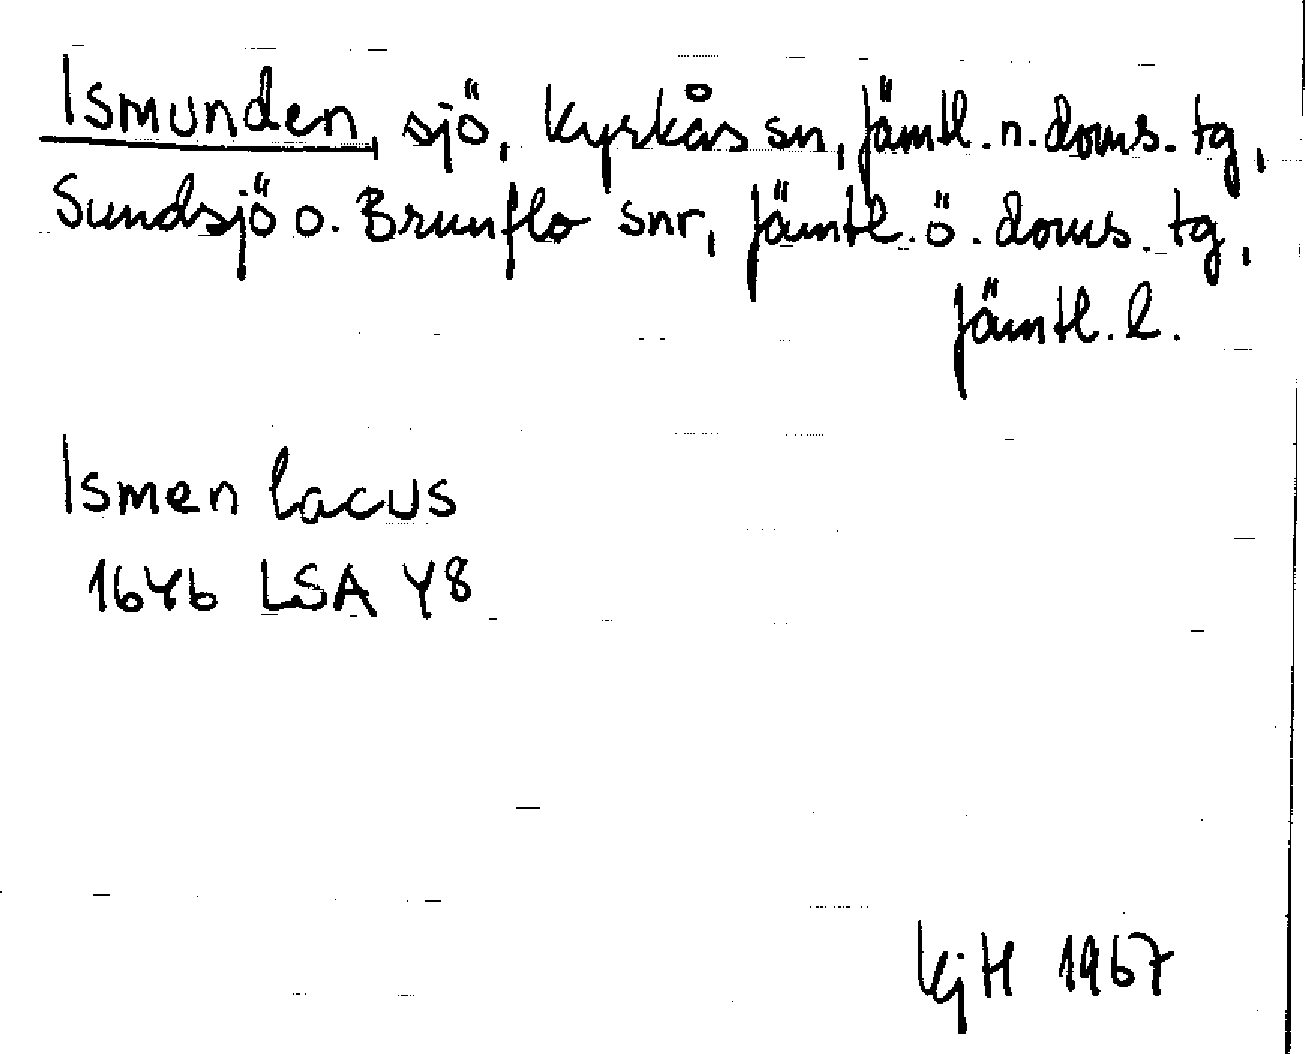 Ismunden, sjö, Kyrkås sn, Jämtl. n. doms. tg,
Sundsjö o. Brunflo snr, Jämtl. ö. doms. tg,
Jämtl. l.
Ismen lacus
1646 LSA Y8
KjH 1967